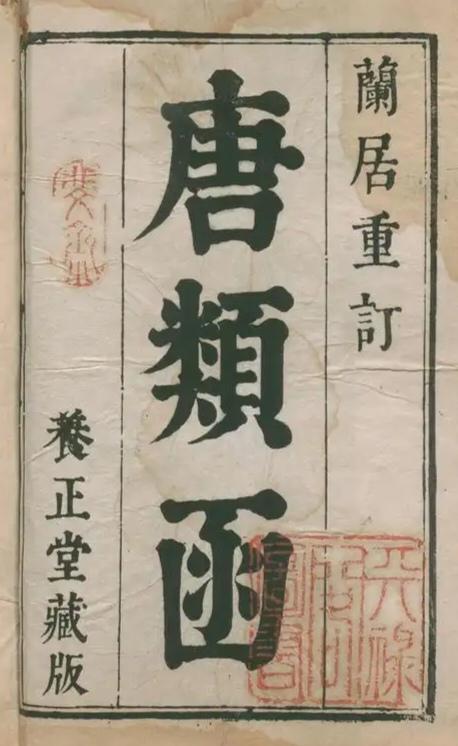 蘭居重訂
唐類函
養正堂藏版